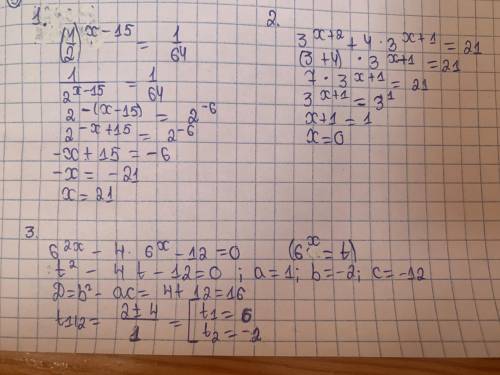 1.
(1/2)^(x-15) = 1/64
1/2^(x-15) = 1/64
2^(-(x-15)) = 2^(-6)
2^(-x+15) = 2^(-6)
-x + 15 = -6
-x = -21
x = 21
2.
3^(x+2) + 4 · 3^(x+1) = 21
(3+4) · 3^(x+1) = 21
7 · 3^(x+1) = 21
3^(x+1) = 3^1
x+1 = 1
x=0
3.
6^(2x) - 4 · 6^x - 12 = 0 (6^x = t)
t² - 4t - 12=0 ; a=1; b=-2; c=-12
D=b²- ac= 4+ 12=16
t1,2= (2±4)/1 = [t1 = 6
t2 = -2